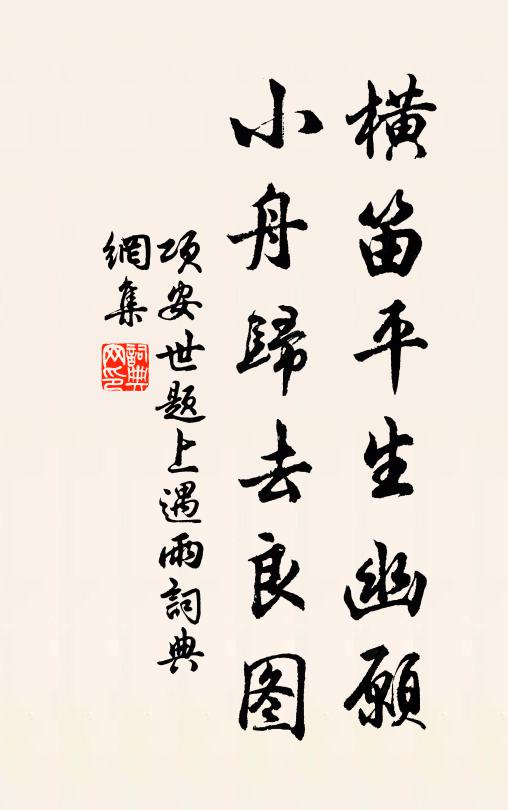 橫笛平生幽願
小舟歸去良图
項安世题上遇雨詞典
網集
詞典
网印